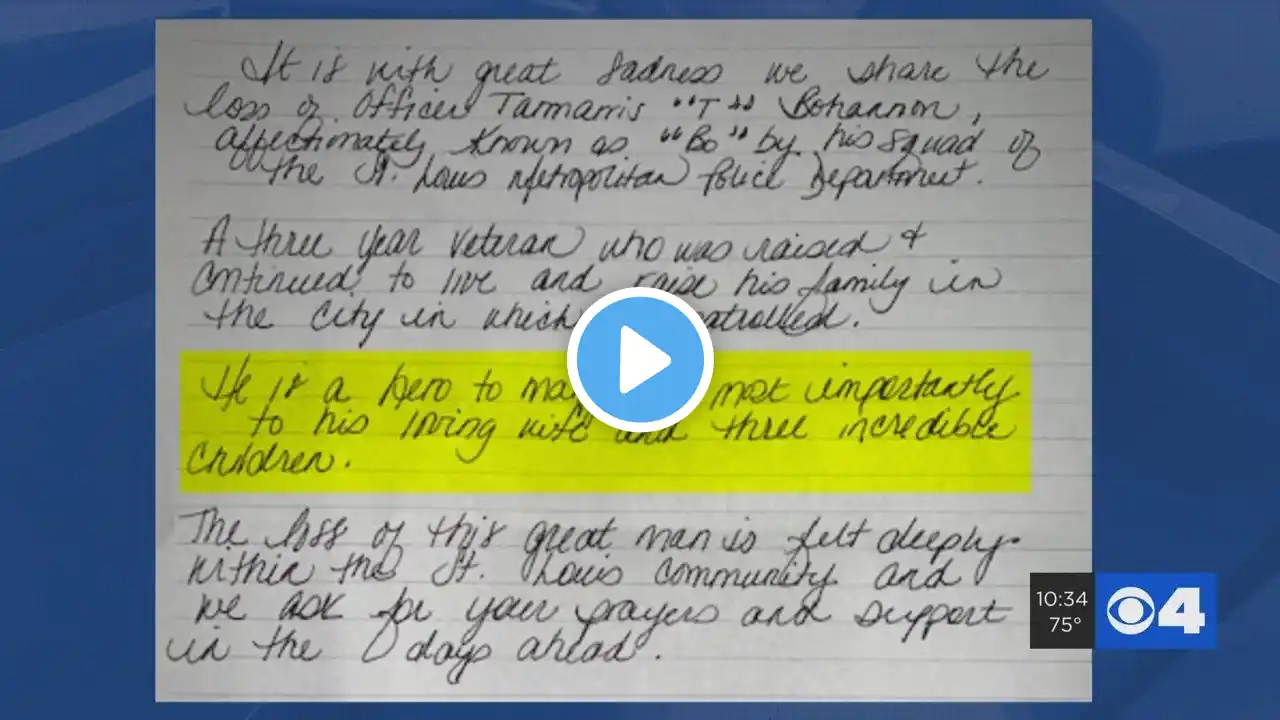 It is with great sadness we share the
loss of Officer Tarmarris "T" Bohannon,
affectionately known as "Bo" by his squad of
the St. Louis Metropolitan Police Department.
A three year veteran who was raised &
continued to live and raise his family in
the city in which patrolled.
He is a hero to most importantly
to his loving wife and three incredible
children.
The loss of this great man is felt deeply
within the St. Louis community and
we ask for your prayers and support
in the days ahead.
10:34
75°
4